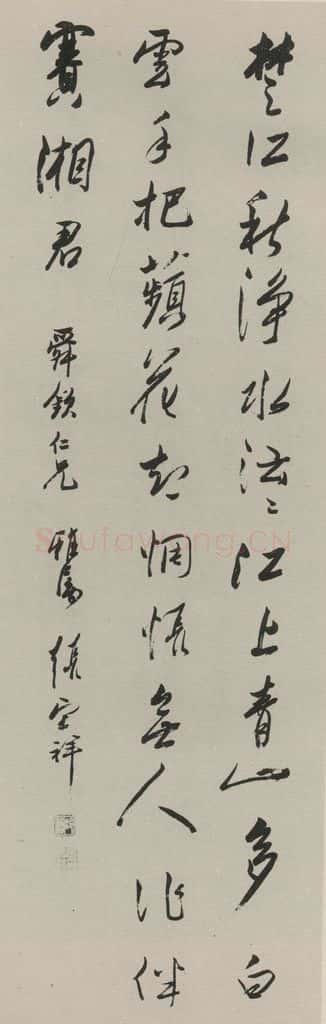 楚江秋净水泫〻江上青山多白
雲手把蘋花却惆悵無人作伴
賽湘君
舜欽仁兄 雅属 張宗祥
Shufawang.CN